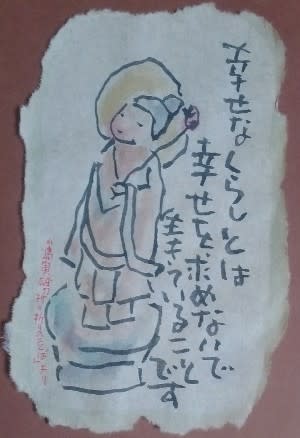 幸せなくらしとは
幸せを求めないで
生きていることです